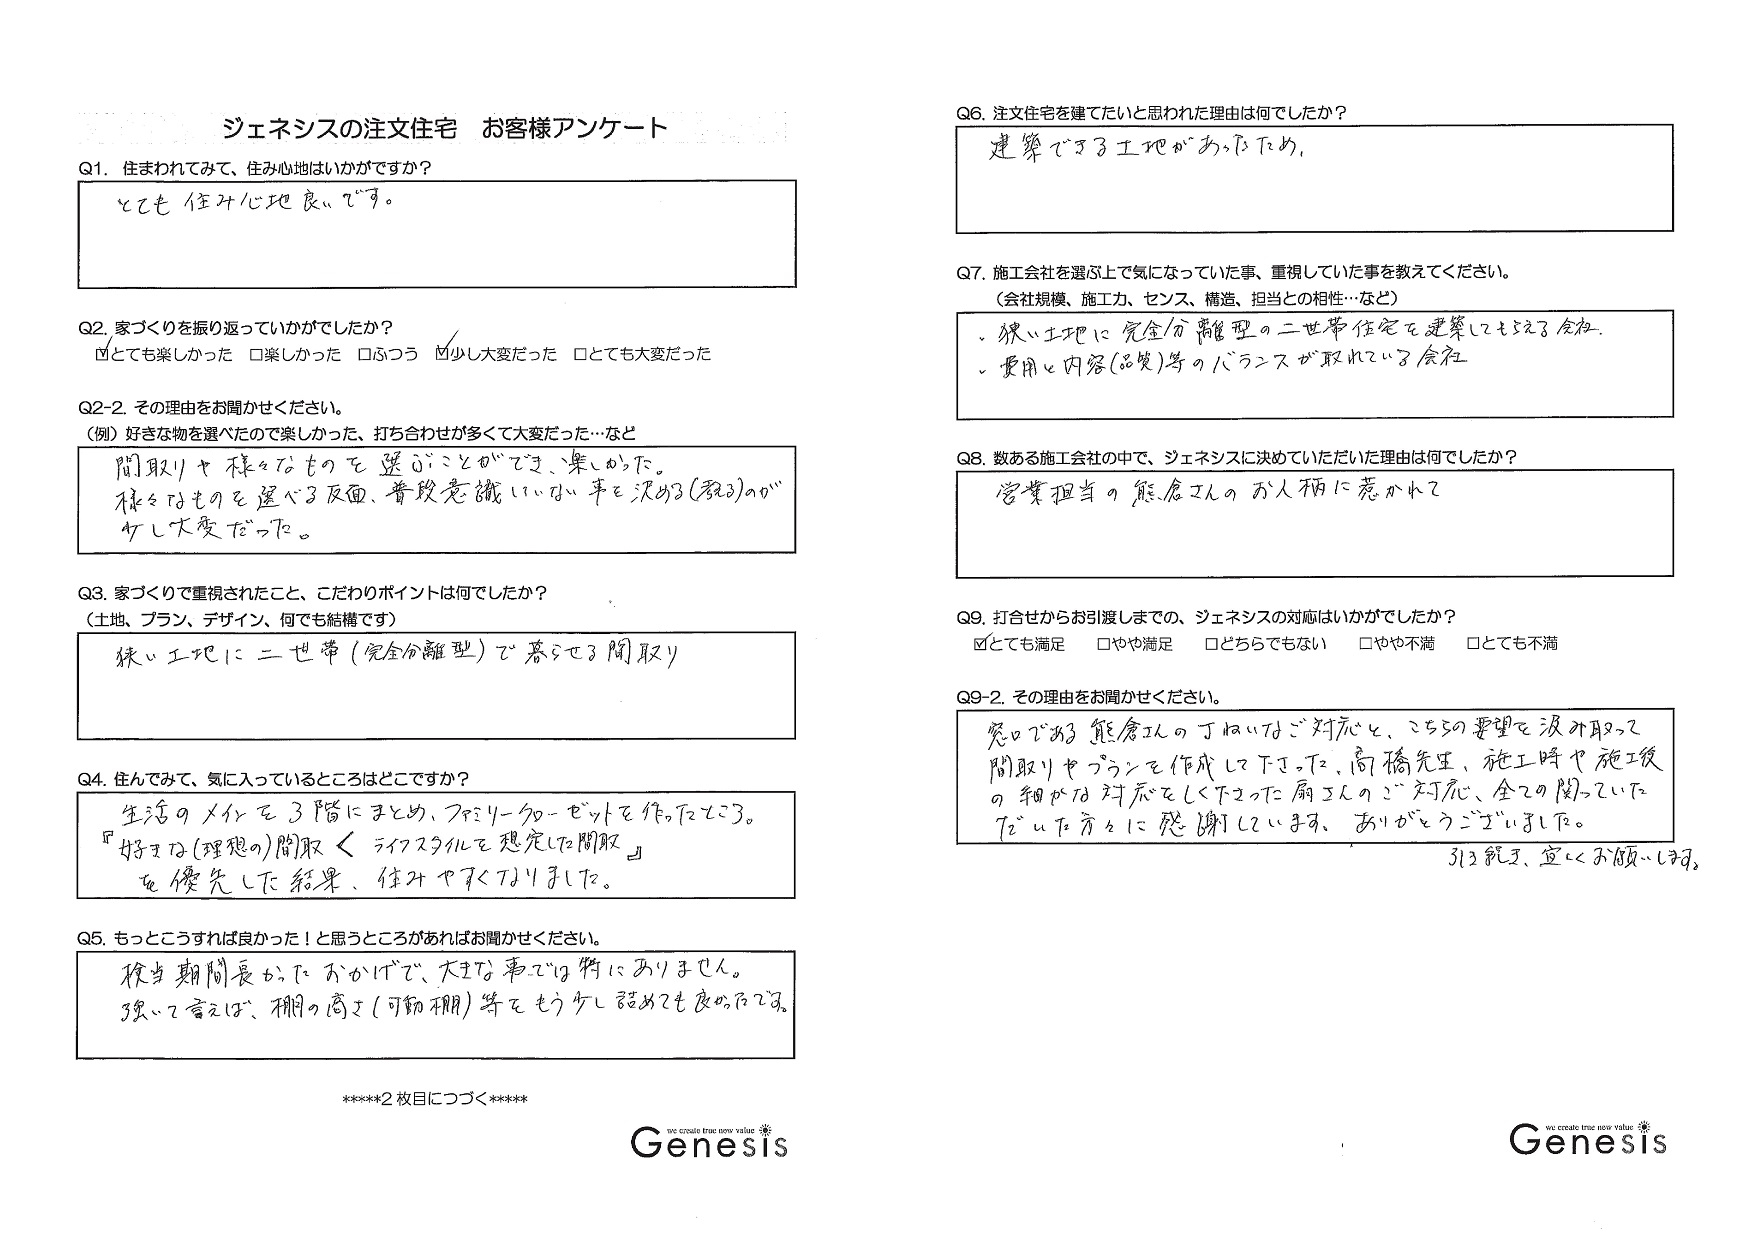 ジェネシスの注文住宅　お客様アンケート
Q1. 住まわれてみて、住み心地はいかがですか？
とても住み心地良いです。
Q2. 家づくりを振り返っていかがでしたか？
☑とても楽しかった　□楽しかった　□ふつう　☑少し大変だった　□とても大変だった
Q2-2. その理由をお聞かせください。
（例）好きな物を選べたので楽しかった、打ち合わせが多くて大変だった…など
間取りや様々なものを選ぶことができ、楽しかった。
様々なものを選べる反面、普段意識していない事を決める(考える)のが
少し大変だった。
Q3. 家づくりで重視されたこと、こだわりポイントは何でしたか？
（土地、プラン、デザイン、何でも結構です）
狭い土地に二世帯(完全分離型)で暮らせる間取り
Q4. 住んでみて、気に入っているところはどこですか？
生活のメインを3階にまとめ、ファミリークローゼットを作ったところ。
『好きな(理想の)間取 < ライフスタイルを想定した間取』
を優先した結果、住みやすくなりました。
Q5. もっとこうすれば良かった！と思うところがあればお聞かせください。
検当期間長かったおかげで、大きな事では特にありません。
強いて言えば、棚の高さ(可動棚)等をもう少し詰めても良かったです。
*****2 枚目につづく*****
we create true new value
Genesis
Q6. 注文住宅を建てたいと思われた理由は何でしたか？
建築できる土地があったため。
Q7. 施工会社を選ぶ上で気になっていた事、重視していた事を教えてください。
（会社規模、施工力、センス、構造、担当との相性…など）
・狭い土地に完全分離型の二世帯住宅を建築してもらえる会社.
・費用と内容(品質)等のバランスが取れている会社
Q8. 数ある施工会社の中で、ジェネシスに決めていただいた理由は何でしたか？
営業担当の熊倉さんのお人柄に惹かれて
Q9. 打合せからお引渡しまでの、ジェネシスの対応はいかがでしたか？
☑とても満足　□やや満足　□どちらでもない　□やや不満　□とても不満
Q9-2. その理由をお聞かせください。
窓口である熊倉さんの丁ねいなご対応と、こちらの要望を汲み取って
間取りやプランを作成して下さった、高橋先生、施工時や施工後
の細かな対応をして下さった扇さんのご対応、全ての関っていた
だいた方々に感謝しています。ありがとうございました。
引き続き、宜しくお願いします。
we create true new value
Genesis